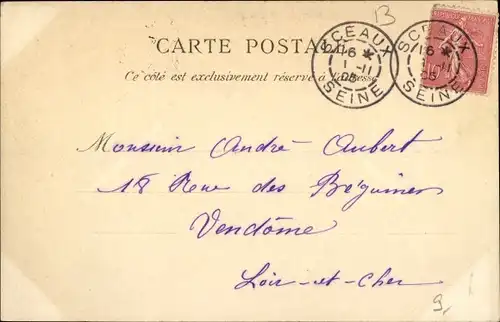 B
CARTE POSTALE
Ce côté est exclusivement réservé à l'adresse
SCEAUX
16 *
1 -11
05
SEINE
SCEAUX
16 *
-11
05
SEINE
Monsieur André Aubert
18 Rue des Béguines
Vendôme
Loir-et-Cher
9,